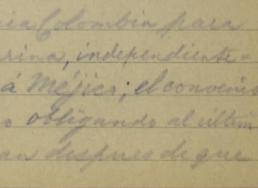 cia Colombia para
rina, independiente-
á Méjico; el convenio
o obligando al últim
an despues de que